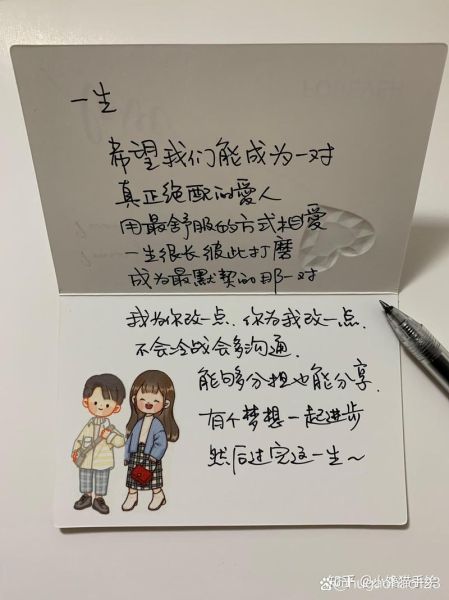 一生
希望我们能成为一对
真正绝配的愛人
用最舒服的方式相愛
一生很长彼此打磨
成为最默契的那一对
我为你改一点、你为我改一点、
不会冷战会多沟通、
能够分担也能分享、
有个梦想一起进步
然后过完这一生～
知乎